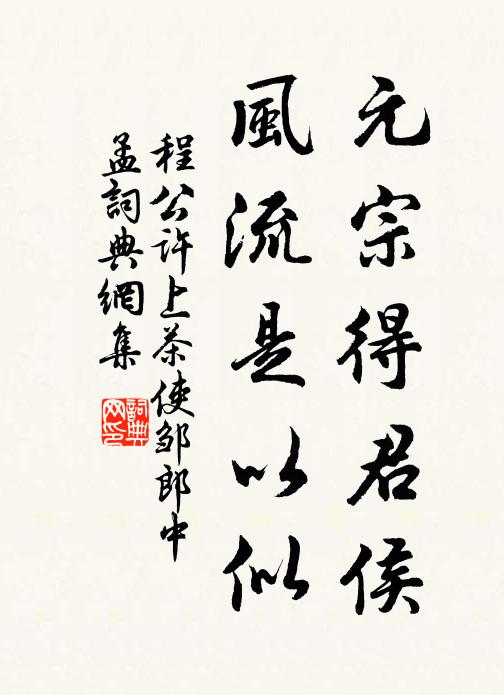 元宗得君侯
風流是以似
程公許上茶使邹郎中
孟詞典網集
詞典网印